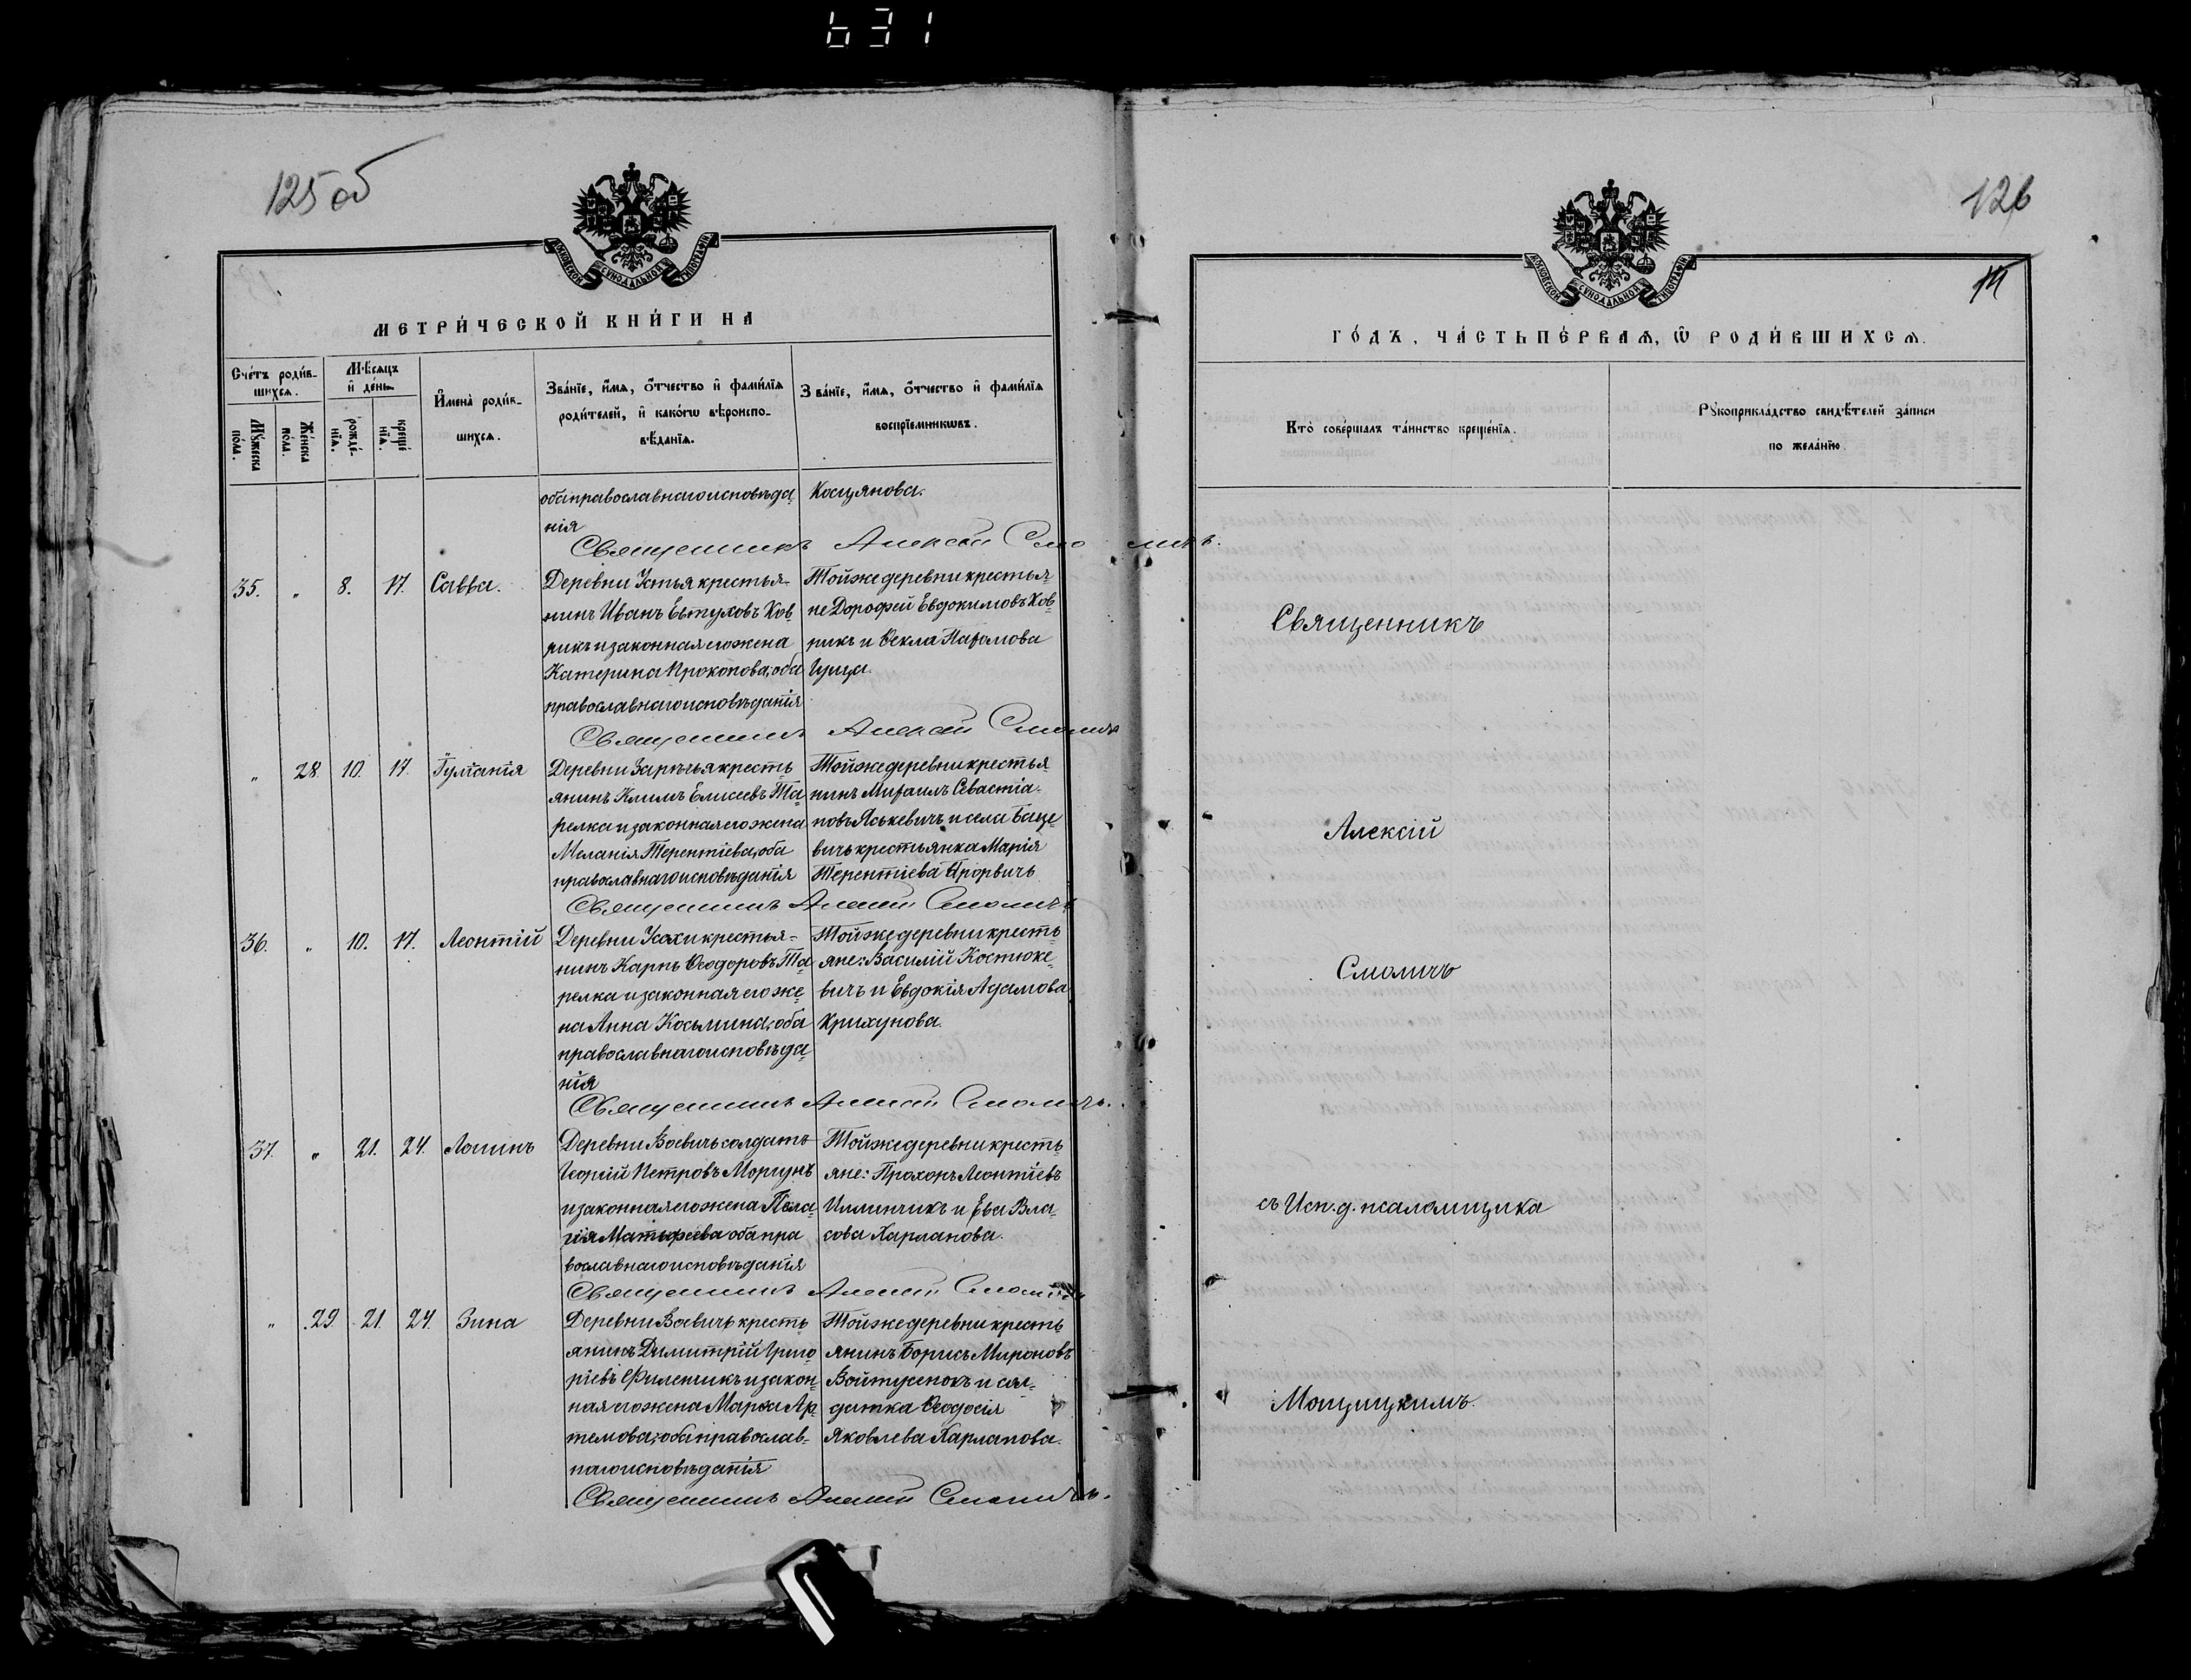 631
125 об
МОСКОВСКОЙ СѴНОДАЛЬНОЙ ТИПОГРАФІИ
МЕТРИ́ЧЕСКОЙ КНИ́ГИ НА
Сче́тъ роди́в-
шихсѧ.
Мꙋ́жеска
по́ла.
Же́нска
по́ла.
Мѣ́сяцъ
и҆ де́нь.
рожде́-
нїѧ.
креще́
нїѧ.
И҆мена̀ роди́в-
шихсѧ.
Зва́нїе, и҆́мѧ, ѻ҆́тчество и҆ фами́лїѧ
роди́телей, и҆ како́гѡ вѣроиспо-
вѣ́данїѧ.
Зва́нїе, и҆́мѧ, ѻ҆́тчество и҆ фами́лїѧ
воспрїе́мникѡвъ.
оба православнаго исповѣда-
нія
Косцянова.
Священникъ Алексѣй Смоличъ.
35. „ 8. 17. Савва.
Деревни Устья крестья-
нинъ Иванъ Евтуховъ Ков-
рикъ и законная его жена
Катерина Прокопова, оба
православнаго исповѣданія
Той же деревни крестья-
не Дорофей Евдокимовъ Ков-
рикъ и Ѳекла
Священникъ Алексѣй Смоличъ
„ 28. 10. 17. Іуліанія
Деревни Зарѣчья кресть-
янинъ Климъ Елисеевъ Та-
релка и законная его жена
Меланія Терентіева, оба
православнаго исповѣданія
Той же деревни крестья-
нинъ Михаилъ Севастіа-
новъ Яськевичъ и села Баце-
вичъ крестьянка Марія
Терентіева
Священникъ Алексѣй Смоличъ
36. „ 10. 17. Леонтій
Деревни Усохи крестья-
нинъ Карпъ Ѳеодоровъ Та-
релка и законная его же-
на Анна Косьмина, оба
православнаго исповѣда-
нія
Той же деревни кресть-
яне: Василій Костюке-
вичъ и Евдокія Адамова
Крихунова.
Священникъ Алексѣй Смоличъ.
37. „ 21. 24. Логинъ
Деревни Воевичъ солдатъ
Георгій Петровъ Моргунъ
и законная его жена Пела-
гія Матѳеева оба пра
вославнаго исповѣданія
Той же деревни кресть-
яне: Прохоръ Леонтіевъ
и Ева Вла-
сова Харланова.
Священникъ Алексѣй Смоличъ
„ 29. 21. 24. Зина
Деревни Воевичъ кресть
янинъ Димитрій Григо-
ріевъ Филенчикъ и закон-
ная его жена Марѳа Ар-
темова, оба православ-
наго исповѣданія
Той же деревни кресть
янинъ Борисъ Мироновъ
Войтусенокъ и сол-
датка Ѳеодосія
Яковлева Харланова.
Священникъ Алексѣй Смоличъ.
126
МОСКОВСКОЙ СѴНОДАЛЬНОЙ ТИПОГРАФІИ
ГО́ДЪ, ЧА́СТЬ ПЕ́РВАѦ, Ѽ РОДИ́ВШИХСѦ.
Кто̀ соверша́лъ та́инство креще́нїѧ.
Рꙋкоприкла́дство свидѣ́телей за́писи
по жела́нїю.
Священникъ
Алексій
Смоличъ
съ Исп. д. псаломщика
Мощицкимъ.